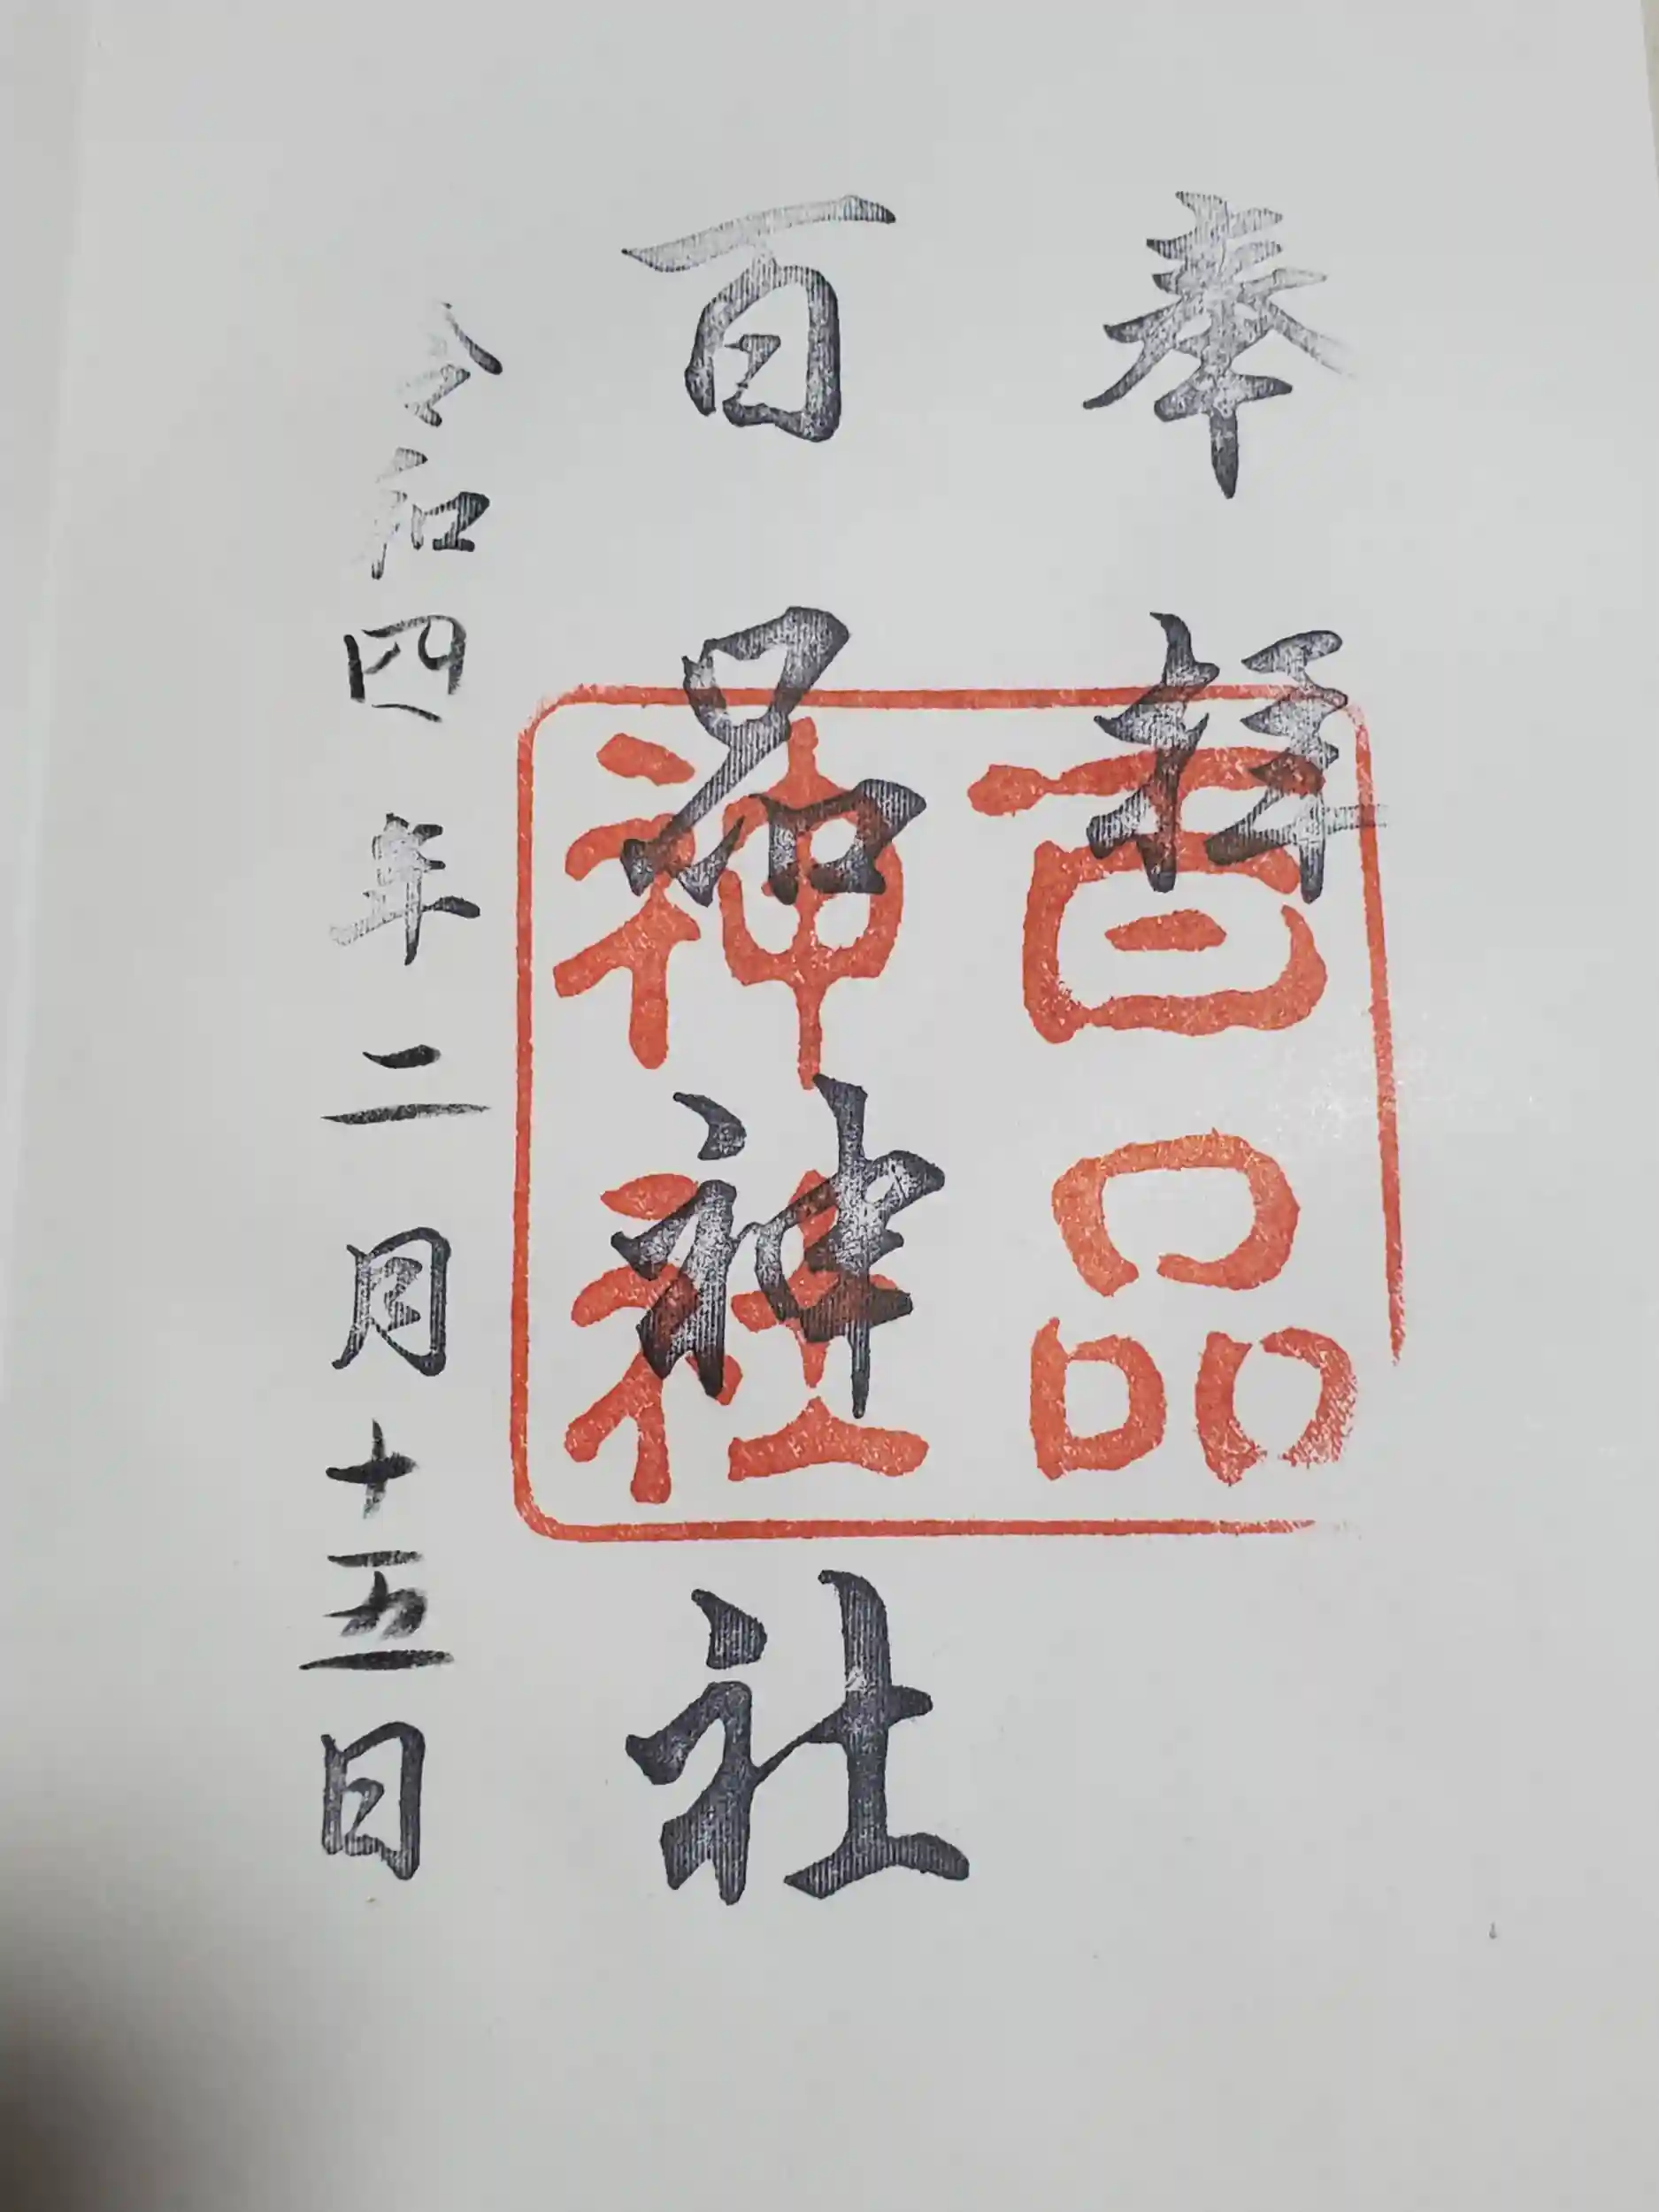 奉拝
百品神社
令和四年二月十五日
百品
神社